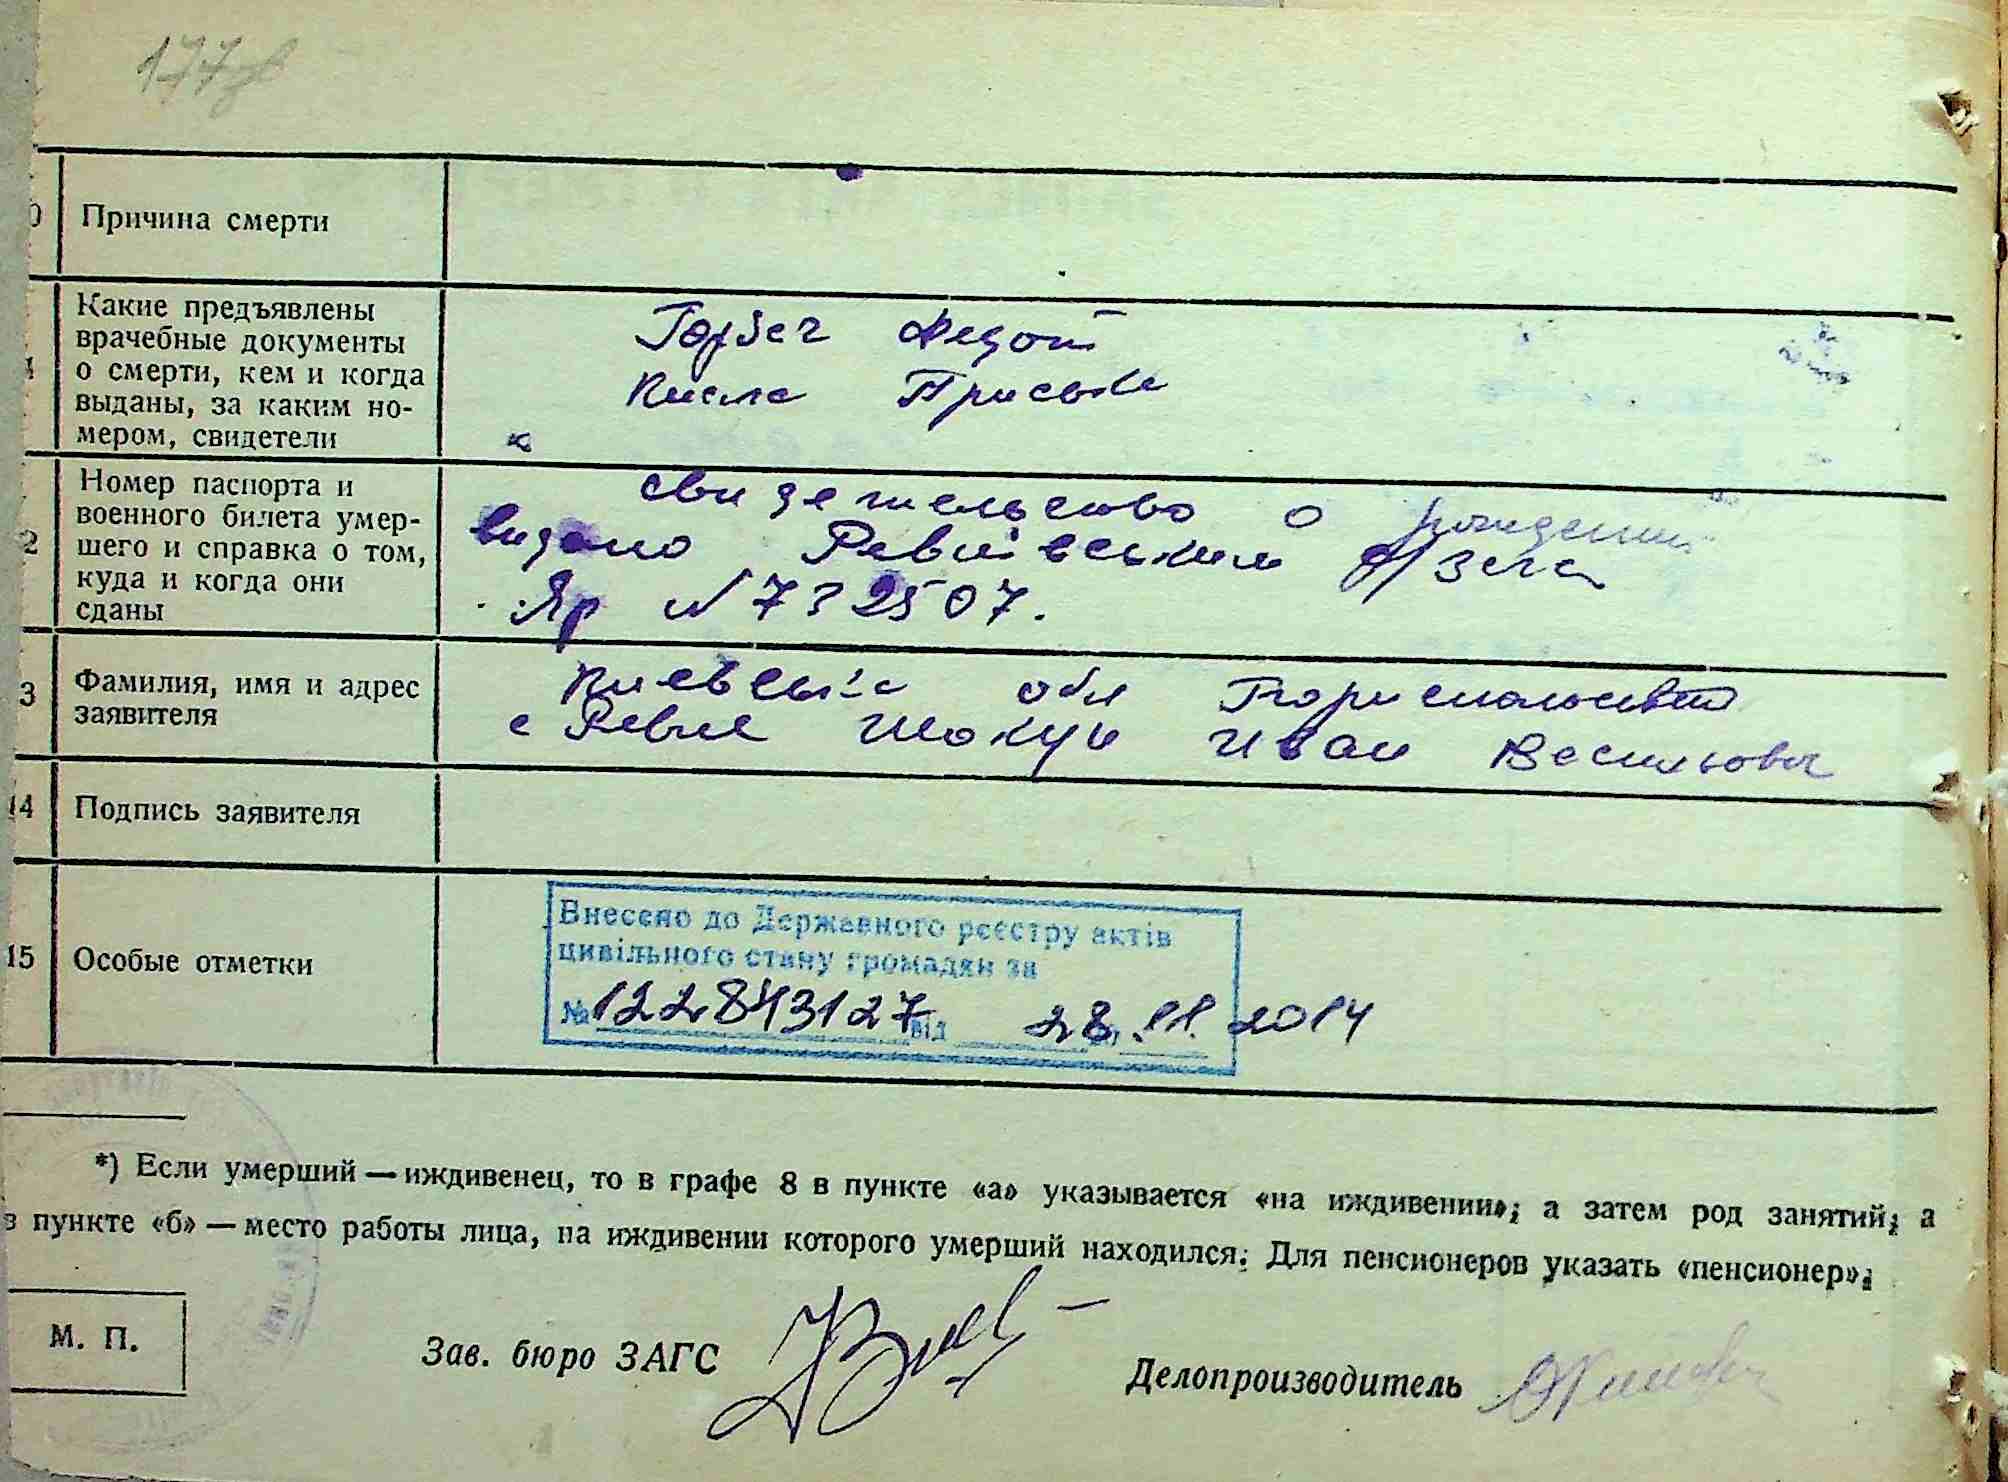 177
Причина смерти
Какие предъявлены
врачебные документы
о смерти, кем и когда
выданы, за каким но-
мером, свидетели
Горбач Федот
Кисла Приська
к
2
Номер паспорта и
военного билета умер-
шего и справка о том,
куда и когда они
сданы
свидетельство о рождении
видано Ревнівським с/Загс
Яр №732507.
3
Фамилия, имя и адрес
заявителя
Киевська обл Бориспольский
с Ревне Шокун Иван Васильович
14
Подпись заявителя
15
Особые отметки
Внесено до Державного реєстру актів
цивільного стану громадян за
№ 122843127 від 28.11.2014
*) Если умерший — иждивенец, то в графе 8 в пункте «а» указывается «на иждивении»; а затем род занятий; а
в пункте «б» — место работы лица, на иждивении которого умерший находился. Для пенсионеров указать «пенсионер»;
М. П.
Зав. бюро ЗАГС
Делопроизводитель